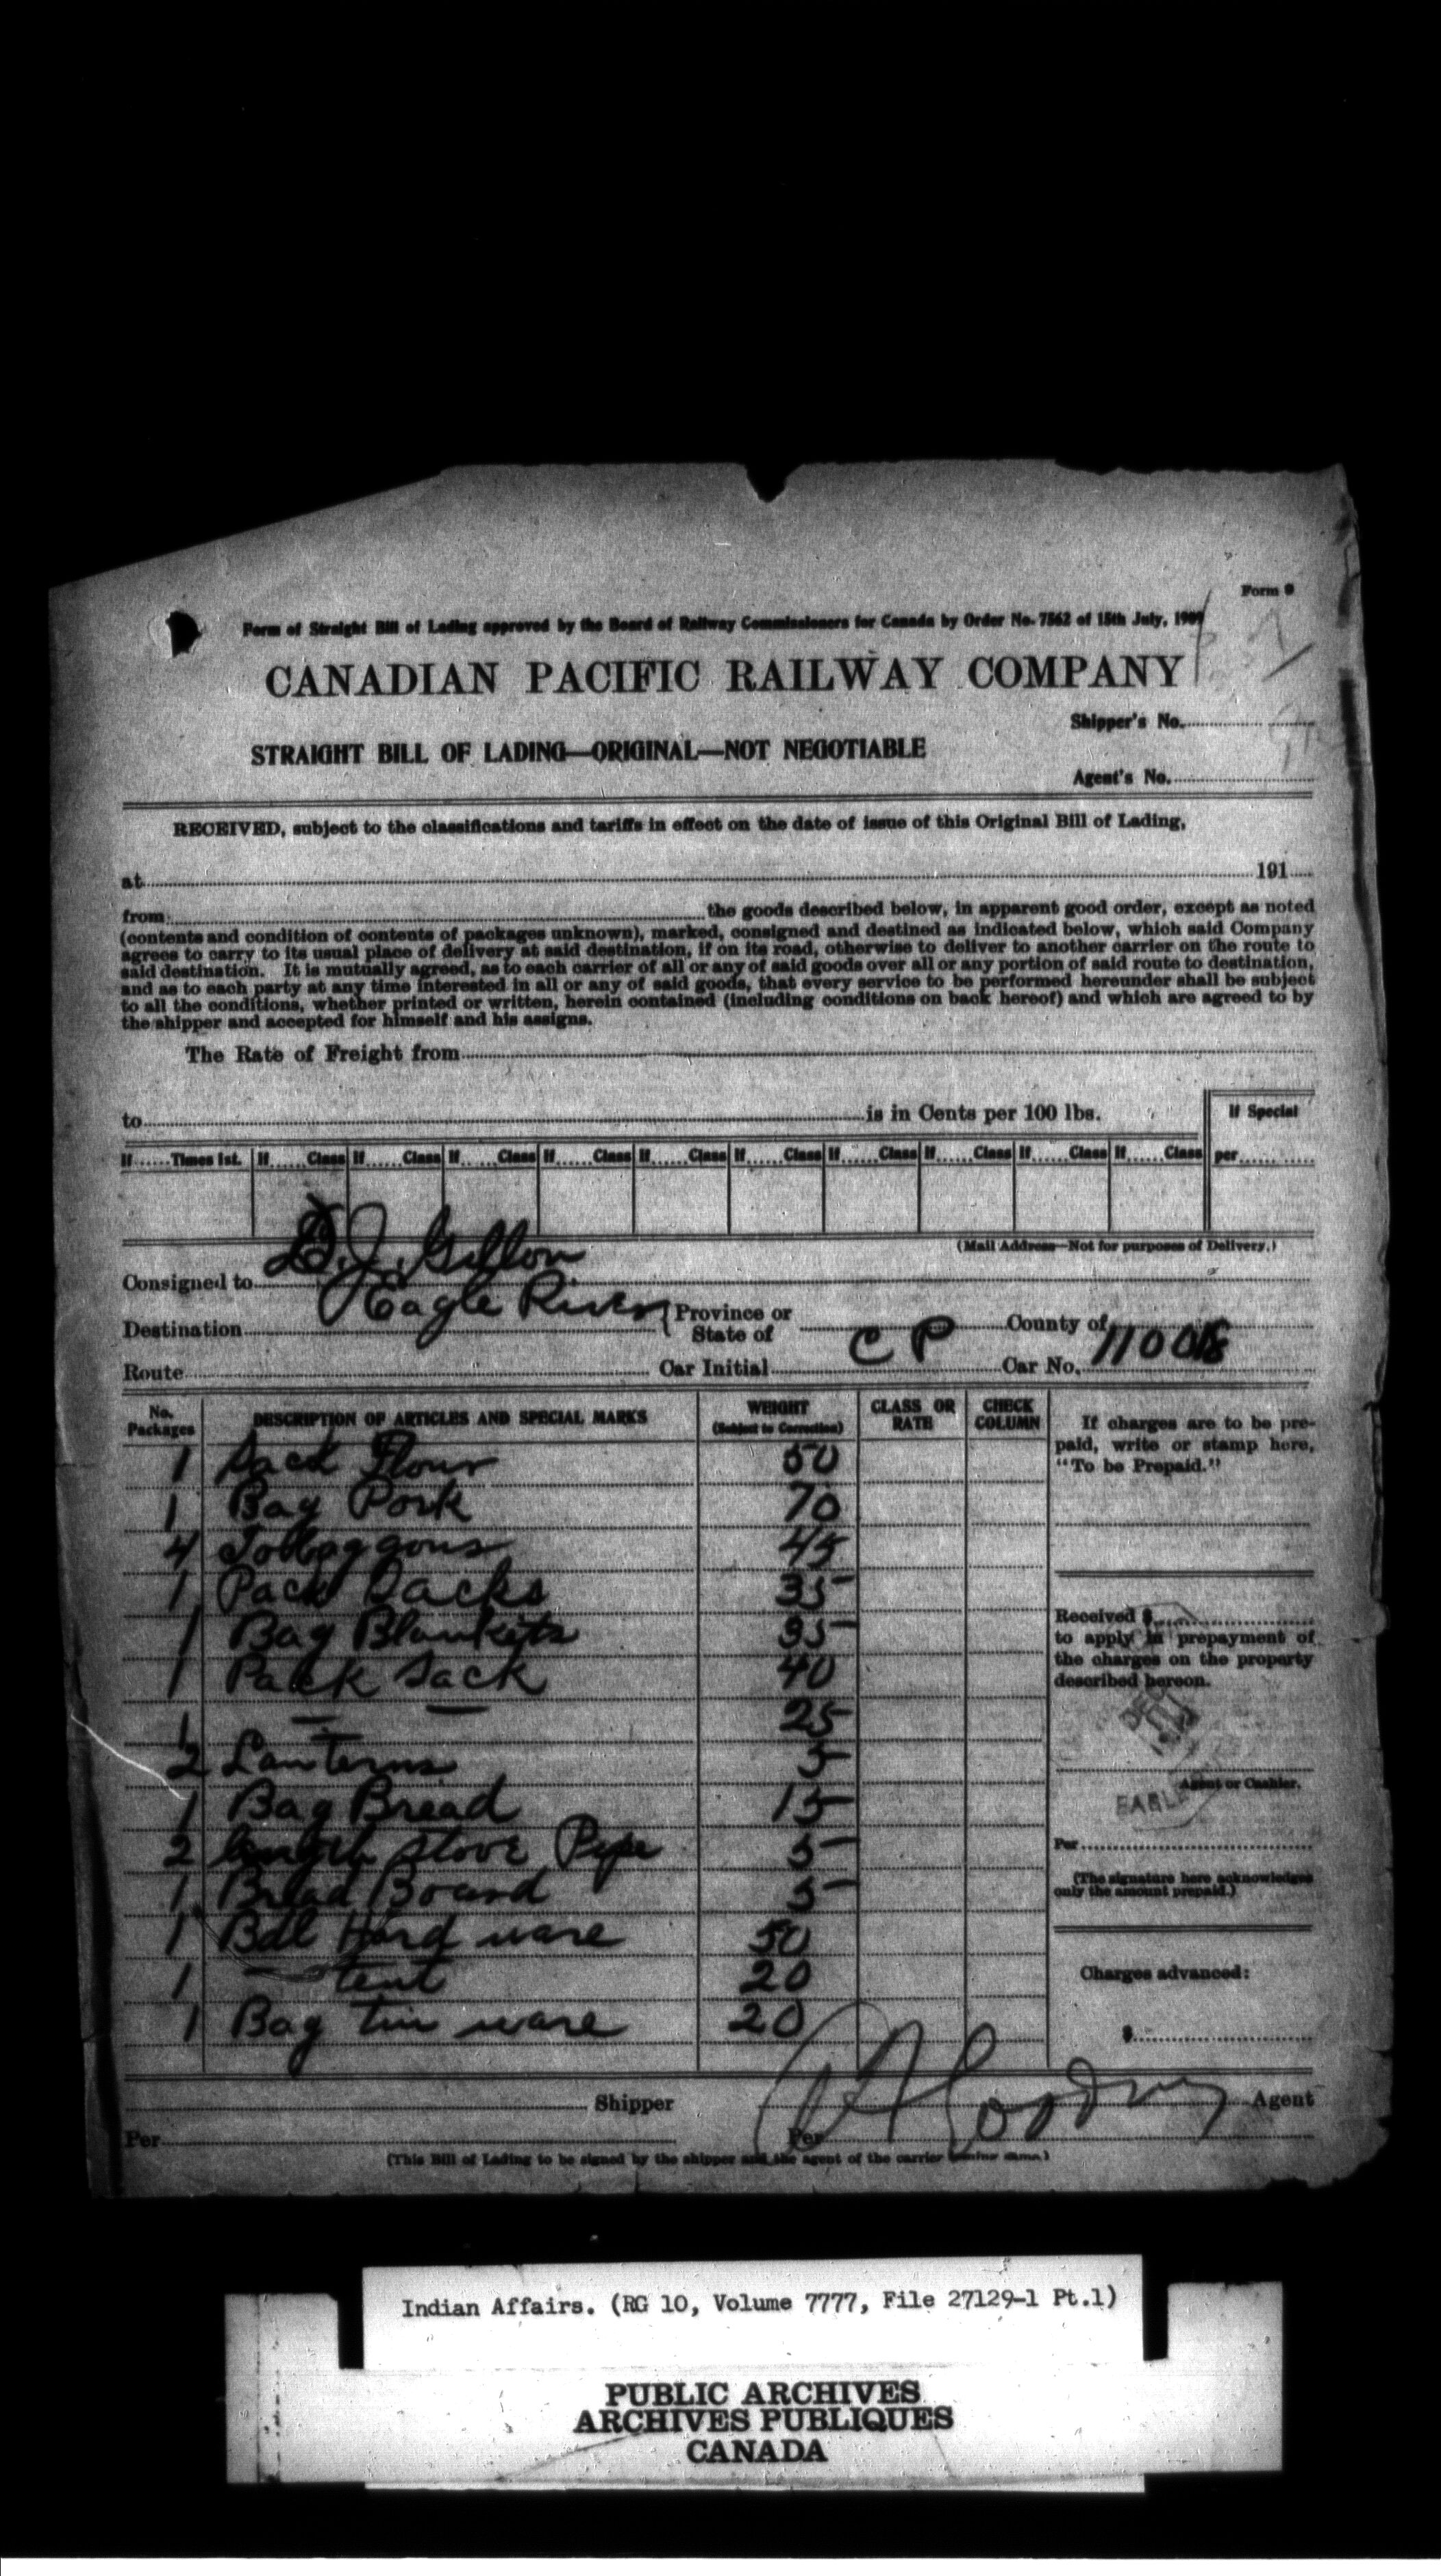 Form 9
Form of Straight Bill of Lading approved by the Board of Railway Commissioners for Canada by Order No. 7562 of 15th July, 1909
CANADIAN PACIFIC RAILWAY COMPANY
Shipper's No.
STRAIGHT BILL OF LADING—ORIGINAL—NOT NEGOTIABLE
Agent's No.
RECEIVED, subject to the classifications and tariffs in effect on the date of issue of this Original Bill of Lading,
at 191
from the goods described below, in apparent good order, except as noted
(contents and condition of contents of packages unknown), marked, consigned and destined as indicated below, which said Company
agrees to carry to its usual place of delivery at said destination, if on its road, otherwise to deliver to another carrier on the route to
said destination. It is mutually agreed, as to each carrier of all or any of said goods over all or any portion of said route to destination,
and as to each party at any time interested in all or any of said goods, that every service to be performed hereunder shall be subject
to all the conditions, whether printed or written, herein contained (including conditions on back hereof) and which are agreed to by
the shipper and accepted for himself and his assigns.
The Rate of Freight from
to is in Cents per 100 lbs. If Special
If Times 1st. If Class If Class If Class If Class If Class If Class If Class If Class If Class If Class per
(Mail Address—Not for purposes of Delivery.)
Consigned to D. J. Gillon
Destination Eagle River Province or State of County of
Route Car Initial C P Car No.
No. Packages DESCRIPTION OF ARTICLES AND SPECIAL MARKS WEIGHT (Subject to Correction) CLASS OR RATE CHECK COLUMN
1 Sack Flour 50
1 Bag Pork 70
4 Toboggons 45
1 Pack Sacks 35
1 Bag Blankets 35
1 Pack Sack 40
1 — — 25
2 Lanterns 5
1 Bag Bread 15
2 length stove Pipe 5
1 Bread Board 5
1 Bdl Hard ware 50
1 — tent 20
1 Bag tin ware 20
If charges are to be pre-
paid, write or stamp here,
"To be Prepaid."
Received $
to apply in prepayment of
the charges on the property
described hereon.
DEC
Agent or Cashier.
EAGLE
Per
(The signature here acknowledges
only the amount prepaid.)
Charges advanced:
$
Shipper Agent
Per Per
(This Bill of Lading to be signed by the shipper and the agent of the carrier issuing same.)
Indian Affairs. (RG 10, Volume 7777, File 27129-1 Pt.1)
PUBLIC ARCHIVES
ARCHIVES PUBLIQUES
CANADA